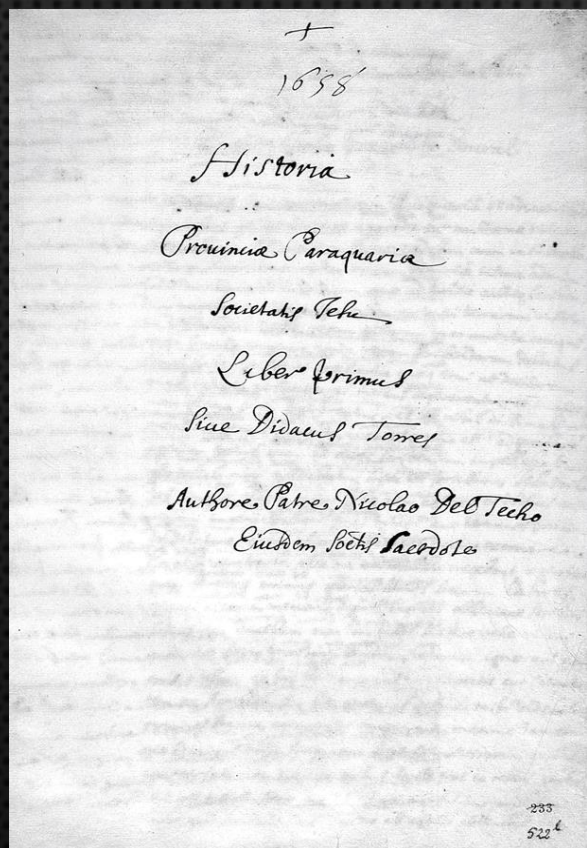 +
1658
Historia
Prouinciæ Paraquariæ
Societatis Jesu
Liber primus
siue Didacus Torres
Authore Patre Nicolao Del Techo
Eiusdem Soctis Sacerdote
233
522